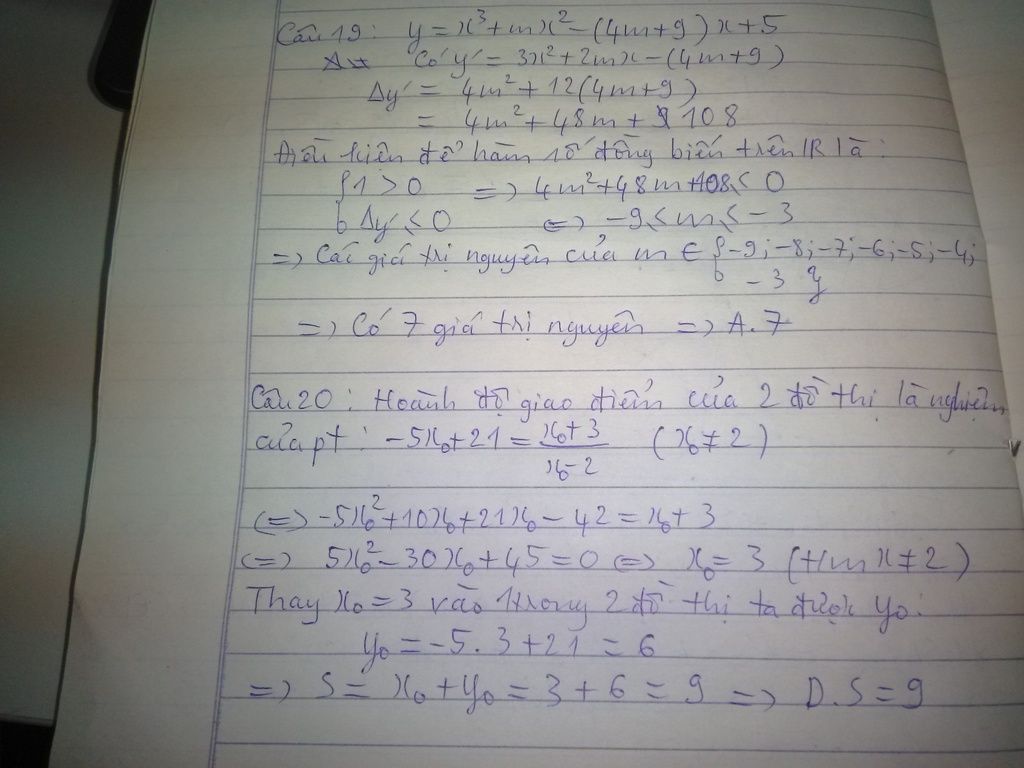 Câu 19: y = x³ + mx² - (4m+9)x + 5
Có y' = 3x² + 2mx - (4m+9)
Δy' = 4m² + 12(4m+9)
= 4m² + 48m + 108
Điều kiện để hàm số đồng biến trên ℝ là:
{ 1 > 0 => 4m² + 48m + 108 ≤ 0
{ Δy' ≤ 0 <=> -9 ≤ m ≤ -3
=> Các giá trị nguyên của m ∈ {-9; -8; -7; -6; -5; -4;
-3}
=> Có 7 giá trị nguyên => A. 7
Câu 20: Hoành độ giao điểm của 2 đồ thị là nghiệm
của pt: -5x₀ + 21 = (x₀+3)/(x₀-2) (x₀ ≠ 2)
<=> -5x₀² + 10x₀ + 21x₀ - 42 = x₀ + 3
<=> 5x₀² - 30x₀ + 45 = 0 <=> x₀ = 3 (t/m x ≠ 2)
Thay x₀ = 3 vào 1 trong 2 đồ thị ta được y₀:
y₀ = -5.3 + 21 = 6
=> S = x₀ + y₀ = 3 + 6 = 9 => D. S = 9